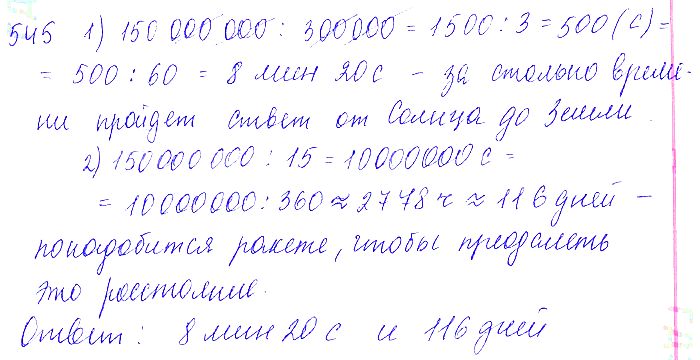 545 1) 150 000 000 : 300 000 = 1500 : 3 = 500 (с) =
= 500 : 60 = 8 мин 20 с – за столько време-
ни пройдет ствет от Солнца до Земли.
2) 150 000 000 : 15 = 10000000 с =
= 10000000 : 360 ≈ 2778 ч ≈ 116 дней –
понадобится ракете, чтобы преодолеть
это расстояние.
Ответ: 8 мин 20 с и 116 дней